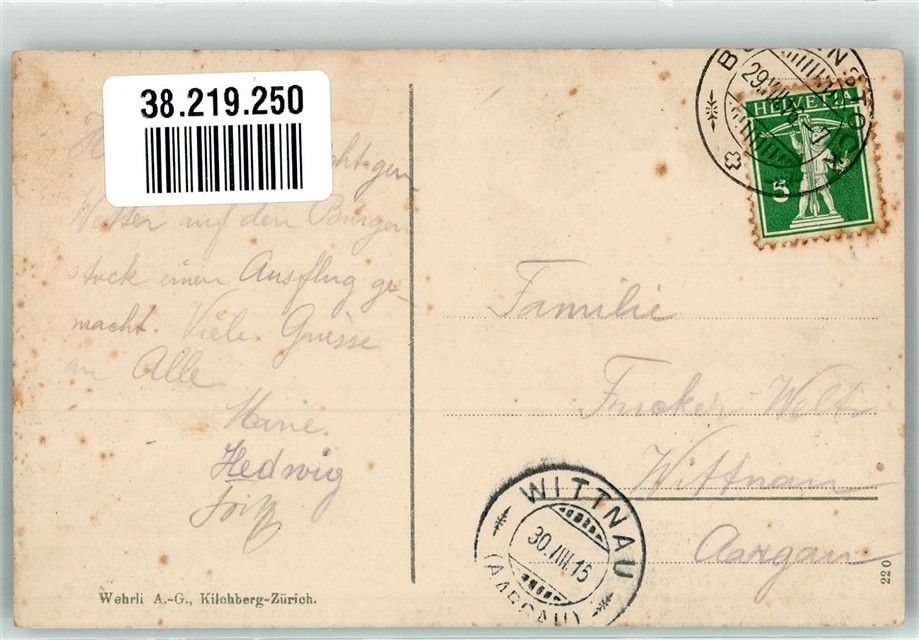 38.219.250
H
chtigen
Wetter auf den Bürgen
stock einen Ausflug ge-
macht. Viele Grüsse
an Alle
Marie
Hedwig
Fritz
Wehrli A.-G., Kilchberg-Zürich.
HELVETIA
5
Familie
Fricker-Welte
Wittnau
Aargau
WITTNAU
30.VIII.15
(AARGAU)
220